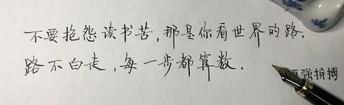 不要抱怨读书苦,那是你看世界的路.
路不白走,每一步都算数.
强拼搏